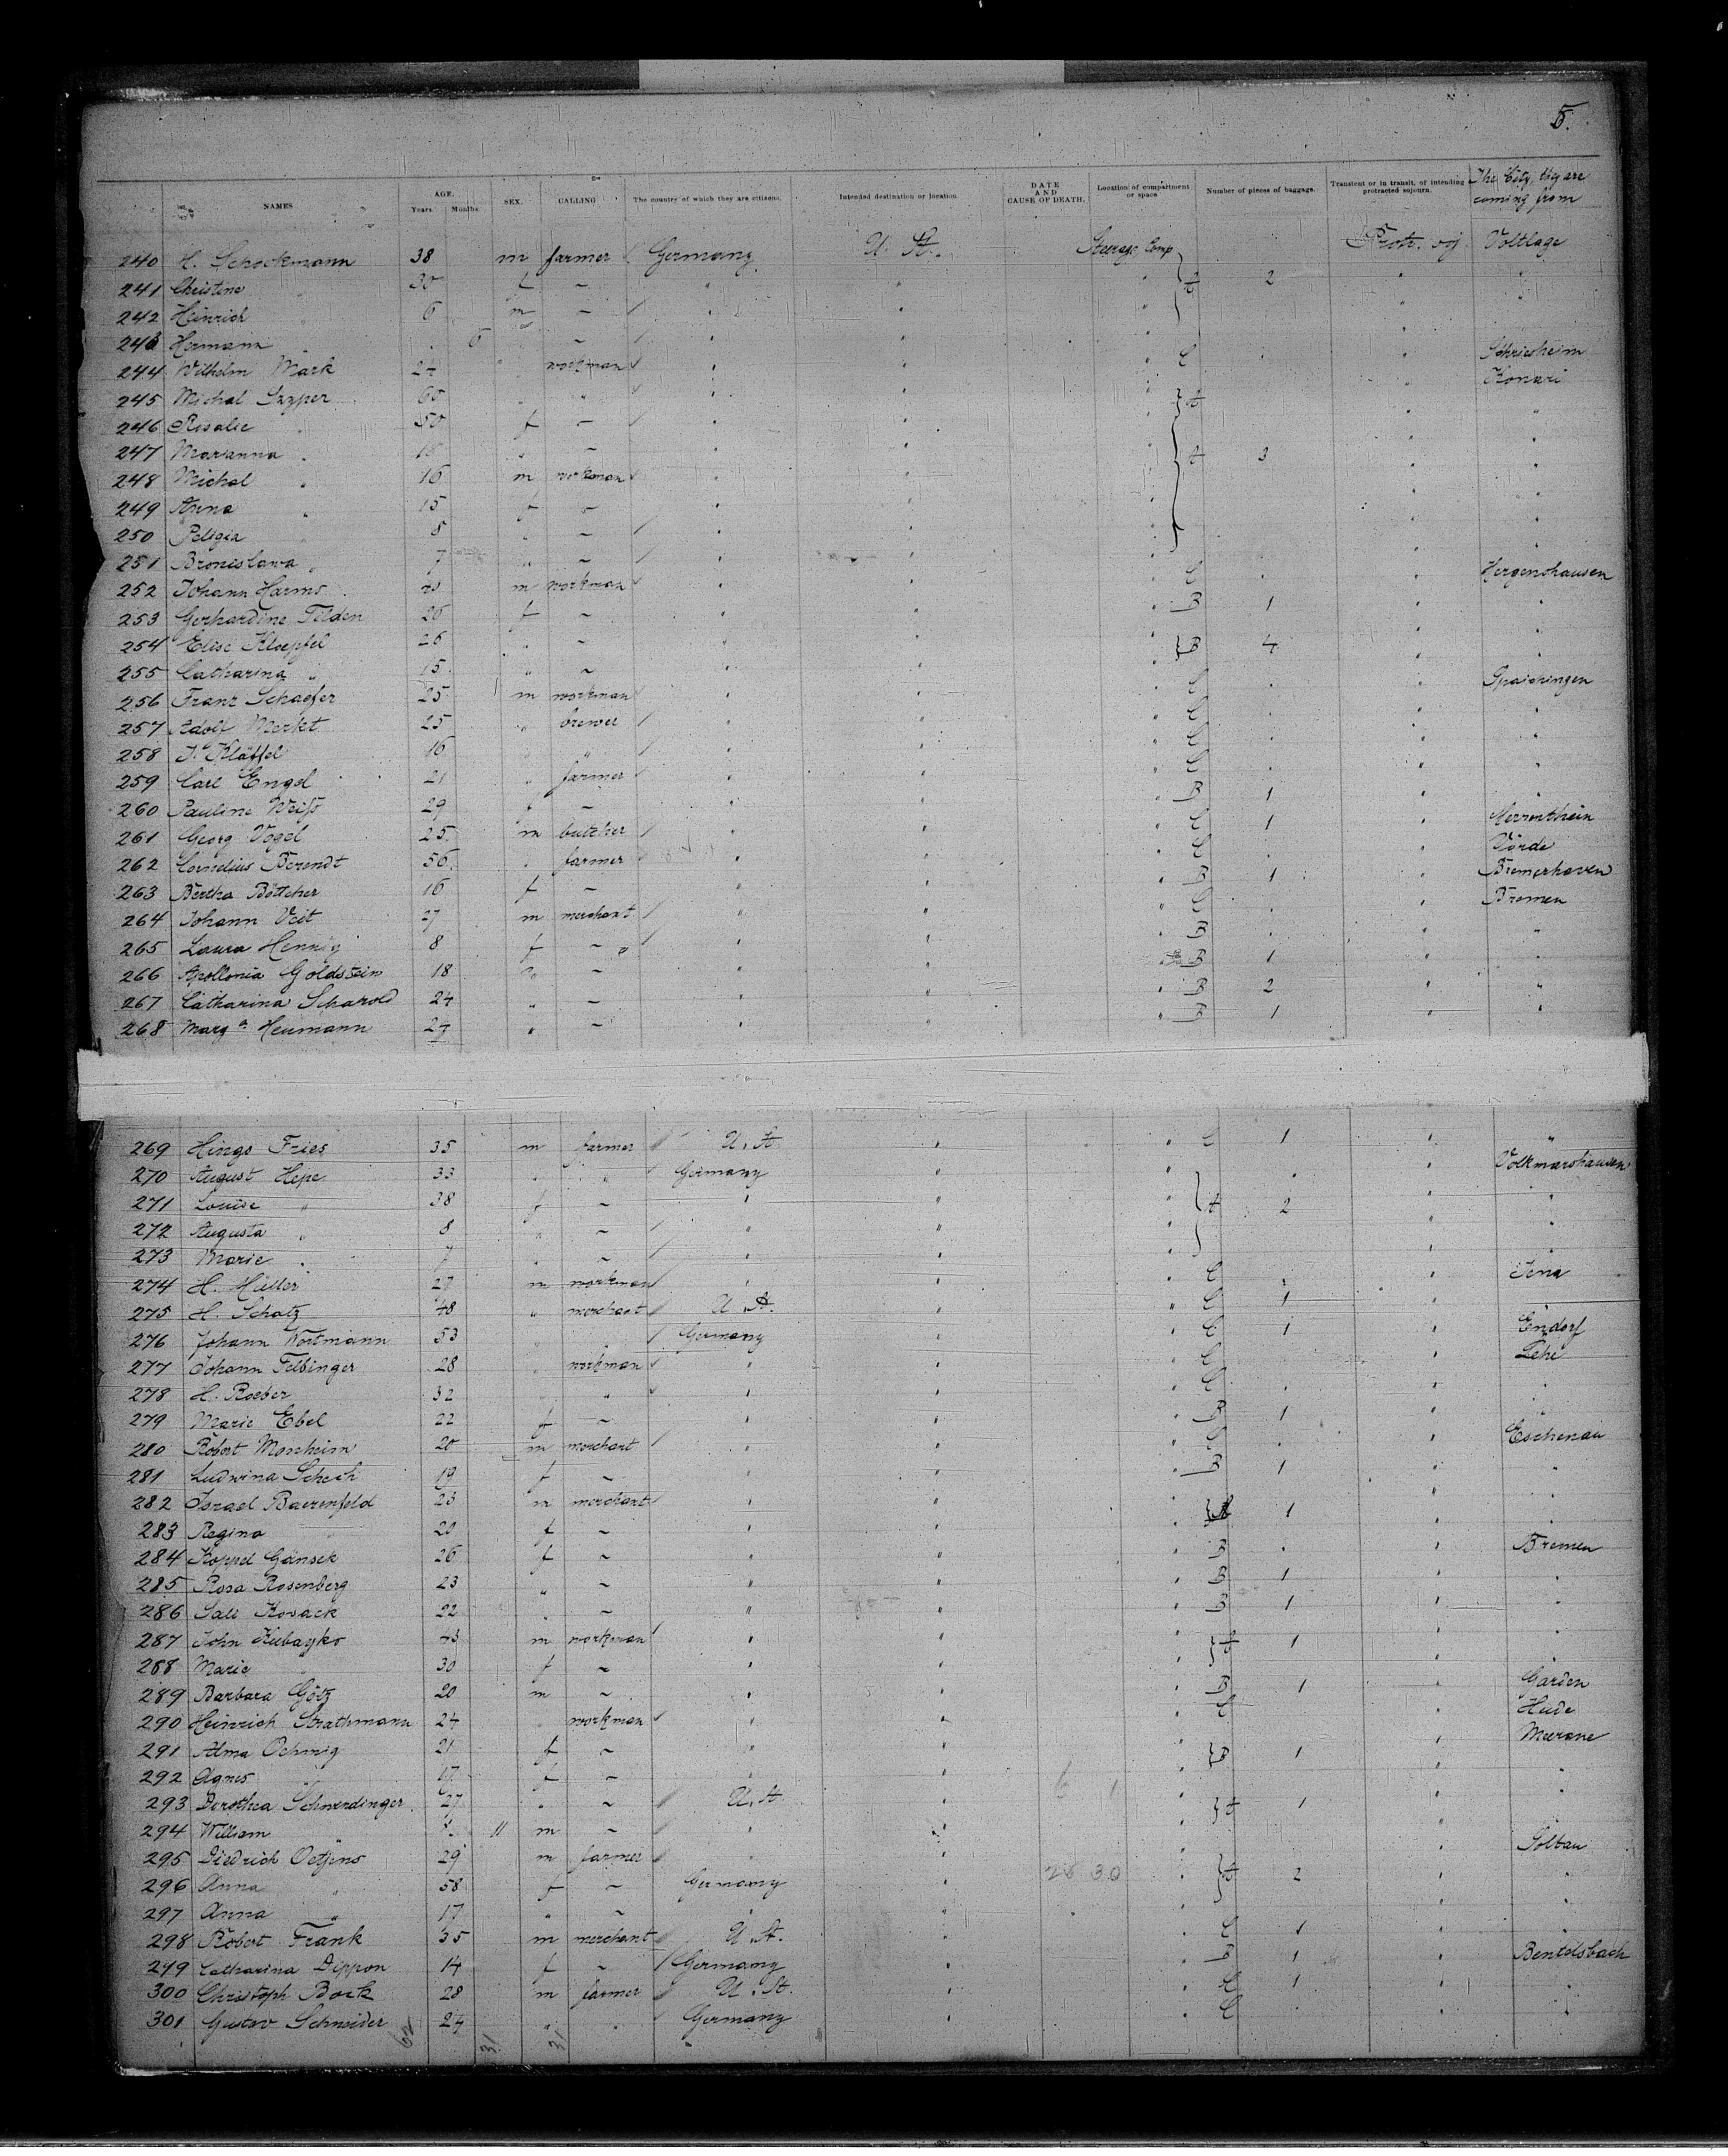 5.
NAMES AGE. Years. Months. SEX. CALLING The country of which they are citizens. Intended destination or location. DATE AND CAUSE OF DEATH. Location of compartment or space Number of pieces of baggage. Transient or in transit, of intending protracted sojourn. The City they are coming from
240 H. Schockmann 38 m farmer Germany U. St. Steerage Comp Voltlage
241 Christine " 30 f ~ " " " A 2 " "
242 Heinrich " 6 m ~ " " " "
243 Hermann " 6 " ~ " " " "
244 Wilhelm Mark 24 " workman " " " C " Schriesheim
245 Michal 60 " " " " " A " Konari
246 Rosalie " 50 f ~ " " " " "
247 Marianna " ~ " " " A 3 " "
248 Michal " 16 m workman " " " " "
249 Anna " 15 f ~ " " " " "
250 Peligia " 8 " ~ " " " " "
251 Bronislawa " 7 " ~ " " " " "
252 Johann Harms m workman " " " C " Hergenshausen
253 Gerhardine Tilden 26 f ~ " " " B 1 " "
254 Elise Kloepfel 26 " ~ " " " B 4 " "
255 Catharina " 15 " ~ " " " " "
256 Franz Schaefer 25 m workman " " " C " Spaichingen
257 Adolf Merkt 25 " brewer " " " C " "
258 J. Kläffel 16 " " " " " C " "
259 Carl Engel 21 " farmer " " " C " "
260 Pauline Weiß 29 f ~ " " " B 1 " "
261 Georg Vogel 25 m butcher " " " C 1 "
262 Cornelius Berendt 56 " farmer " " " C " Vörde
263 Bertha Böttcher 16 f ~ " " " B 1 " Bremerhaven
264 Johann Veit 27 m merchant " " " C " Bremen
265 Laura Hennig 8 f ~ " " " B " "
266 Apollonia Goldstein 18 " ~ " " " B 1 " "
267 Catharina Scharold 24 " ~ " " " B 2 " "
268 Marg a Heumann 24 " ~ " " " B 1 " "
269 Hings Fries 35 m farmer U. St " " C 1 " "
270 August Hepe 33 " " Germany " " " Volkmarshausen
271 Louise " 38 f ~ " " " A 2 " "
272 Augusta " 8 " ~ " " " " "
273 Marie " 7 " ~ " " " " "
274 H. Müller 27 m workman " " " C " Jena
275 H. Schatz 48 " merchant U. St. " " C 1 " "
276 Johann Wortmann 53 " " Germany " " C 1 " Endorf
277 Johann Felbinger 28 " workman " " " C " Lehe
278 H. Roeber 32 " " " " " C " "
279 Marie Ebel 22 f ~ " " " B 1 " "
280 Robert Monheim 20 m merchant " " " C " Eschenau
281 Ludwina Schech 19 f ~ " " " B 1 " "
282 Israel Baerenfeld 23 m merchant " " " A 1 " "
283 Regina " 20 f ~ " " " " "
284 Koppel Gänsek 26 f ~ " " " B " Bremen
285 Rosa Rosenberg 23 " ~ " " " B 1 " "
286 Sali Kovack 22 " ~ " " " B 1 " "
287 John Kubayko 43 m workman " " " A 1 " "
288 Marie " 30 f ~ " " " " "
289 Barbara Götz 20 m ~ " " " B 1 " Garden
290 Heinrich Strathmann 24 " workman " " " C " Hude
291 Alma Oehmig 21 f ~ " " " B 1 " Meerane
292 Agnes " 17 f ~ " " " " "
293 Dorothea Schwerdinger 27 " ~ U. St " " A 1 " "
294 William " 11 m ~ " " " " "
295 Diedrich Oetjens 29 m farmer " " " " Soltau
296 Anna " 58 f ~ Germany " " A 2 " "
297 Anna " 17 " ~ " " " " "
298 Robert Frank 35 m merchant U. St. " " C 1 " "
299 Catharina Dippon 14 f ~ Germany " " B 1 " Beutelsbach
300 Christoph Bock 28 m farmer U. St. " " C 1 " "
301 Gustav Schneider 24 " " Germany " " C " "
62 31 31